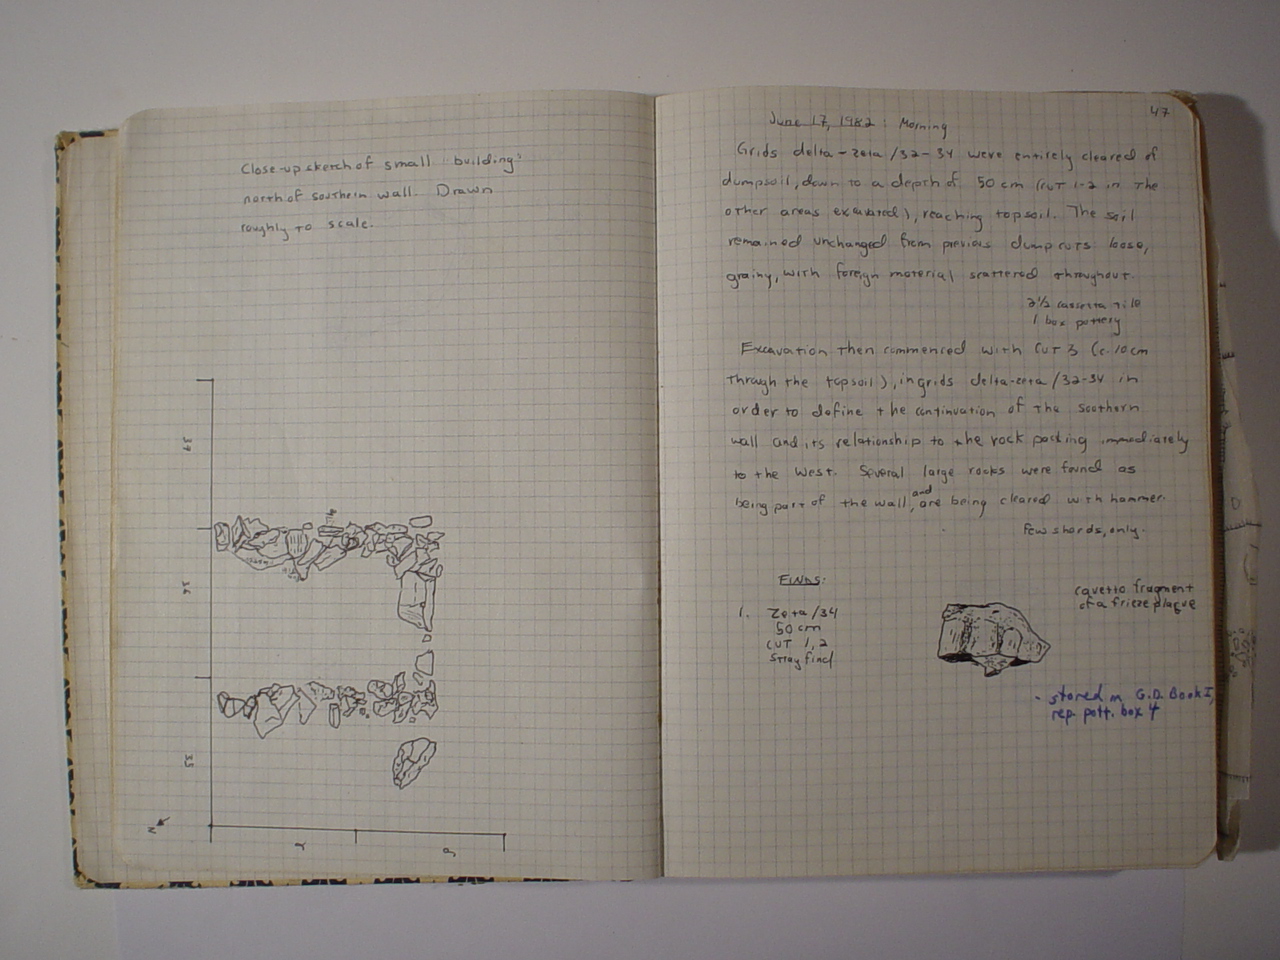 Close-up sketch of small "building"
north of southern wall. Drawn
roughly to scale.
37
36
35
N
γ
δ
47
June 17, 1982: Morning
Grids delta-zeta/32-34 were entirely cleared of
dumpsoil, down to a depth of 50 cm (cut 1-2 in the
other areas excavated), reaching topsoil. The soil
remained unchanged from previous dump cuts loose,
grainy, with foreign material scattered throughout.
2 1/2 cassetta tile
1 box pottery
Excavation then commenced with Cut 3 (c. 10cm
through the topsoil), in grids delta-zeta/32-34 in
order to define the continuation of the southern
wall and its relationship to the rock packing immediately
to the west. Several large rocks were found as
being part of the wall, and are being cleared with hammer.
Few sherds, only.
FINDS:
1. Zeta/34
50 cm
Cut 1, 2
Stray find
cavetto fragment
of a frieze plaque
- stored in G.D. Book I,
rep. pott. box 4